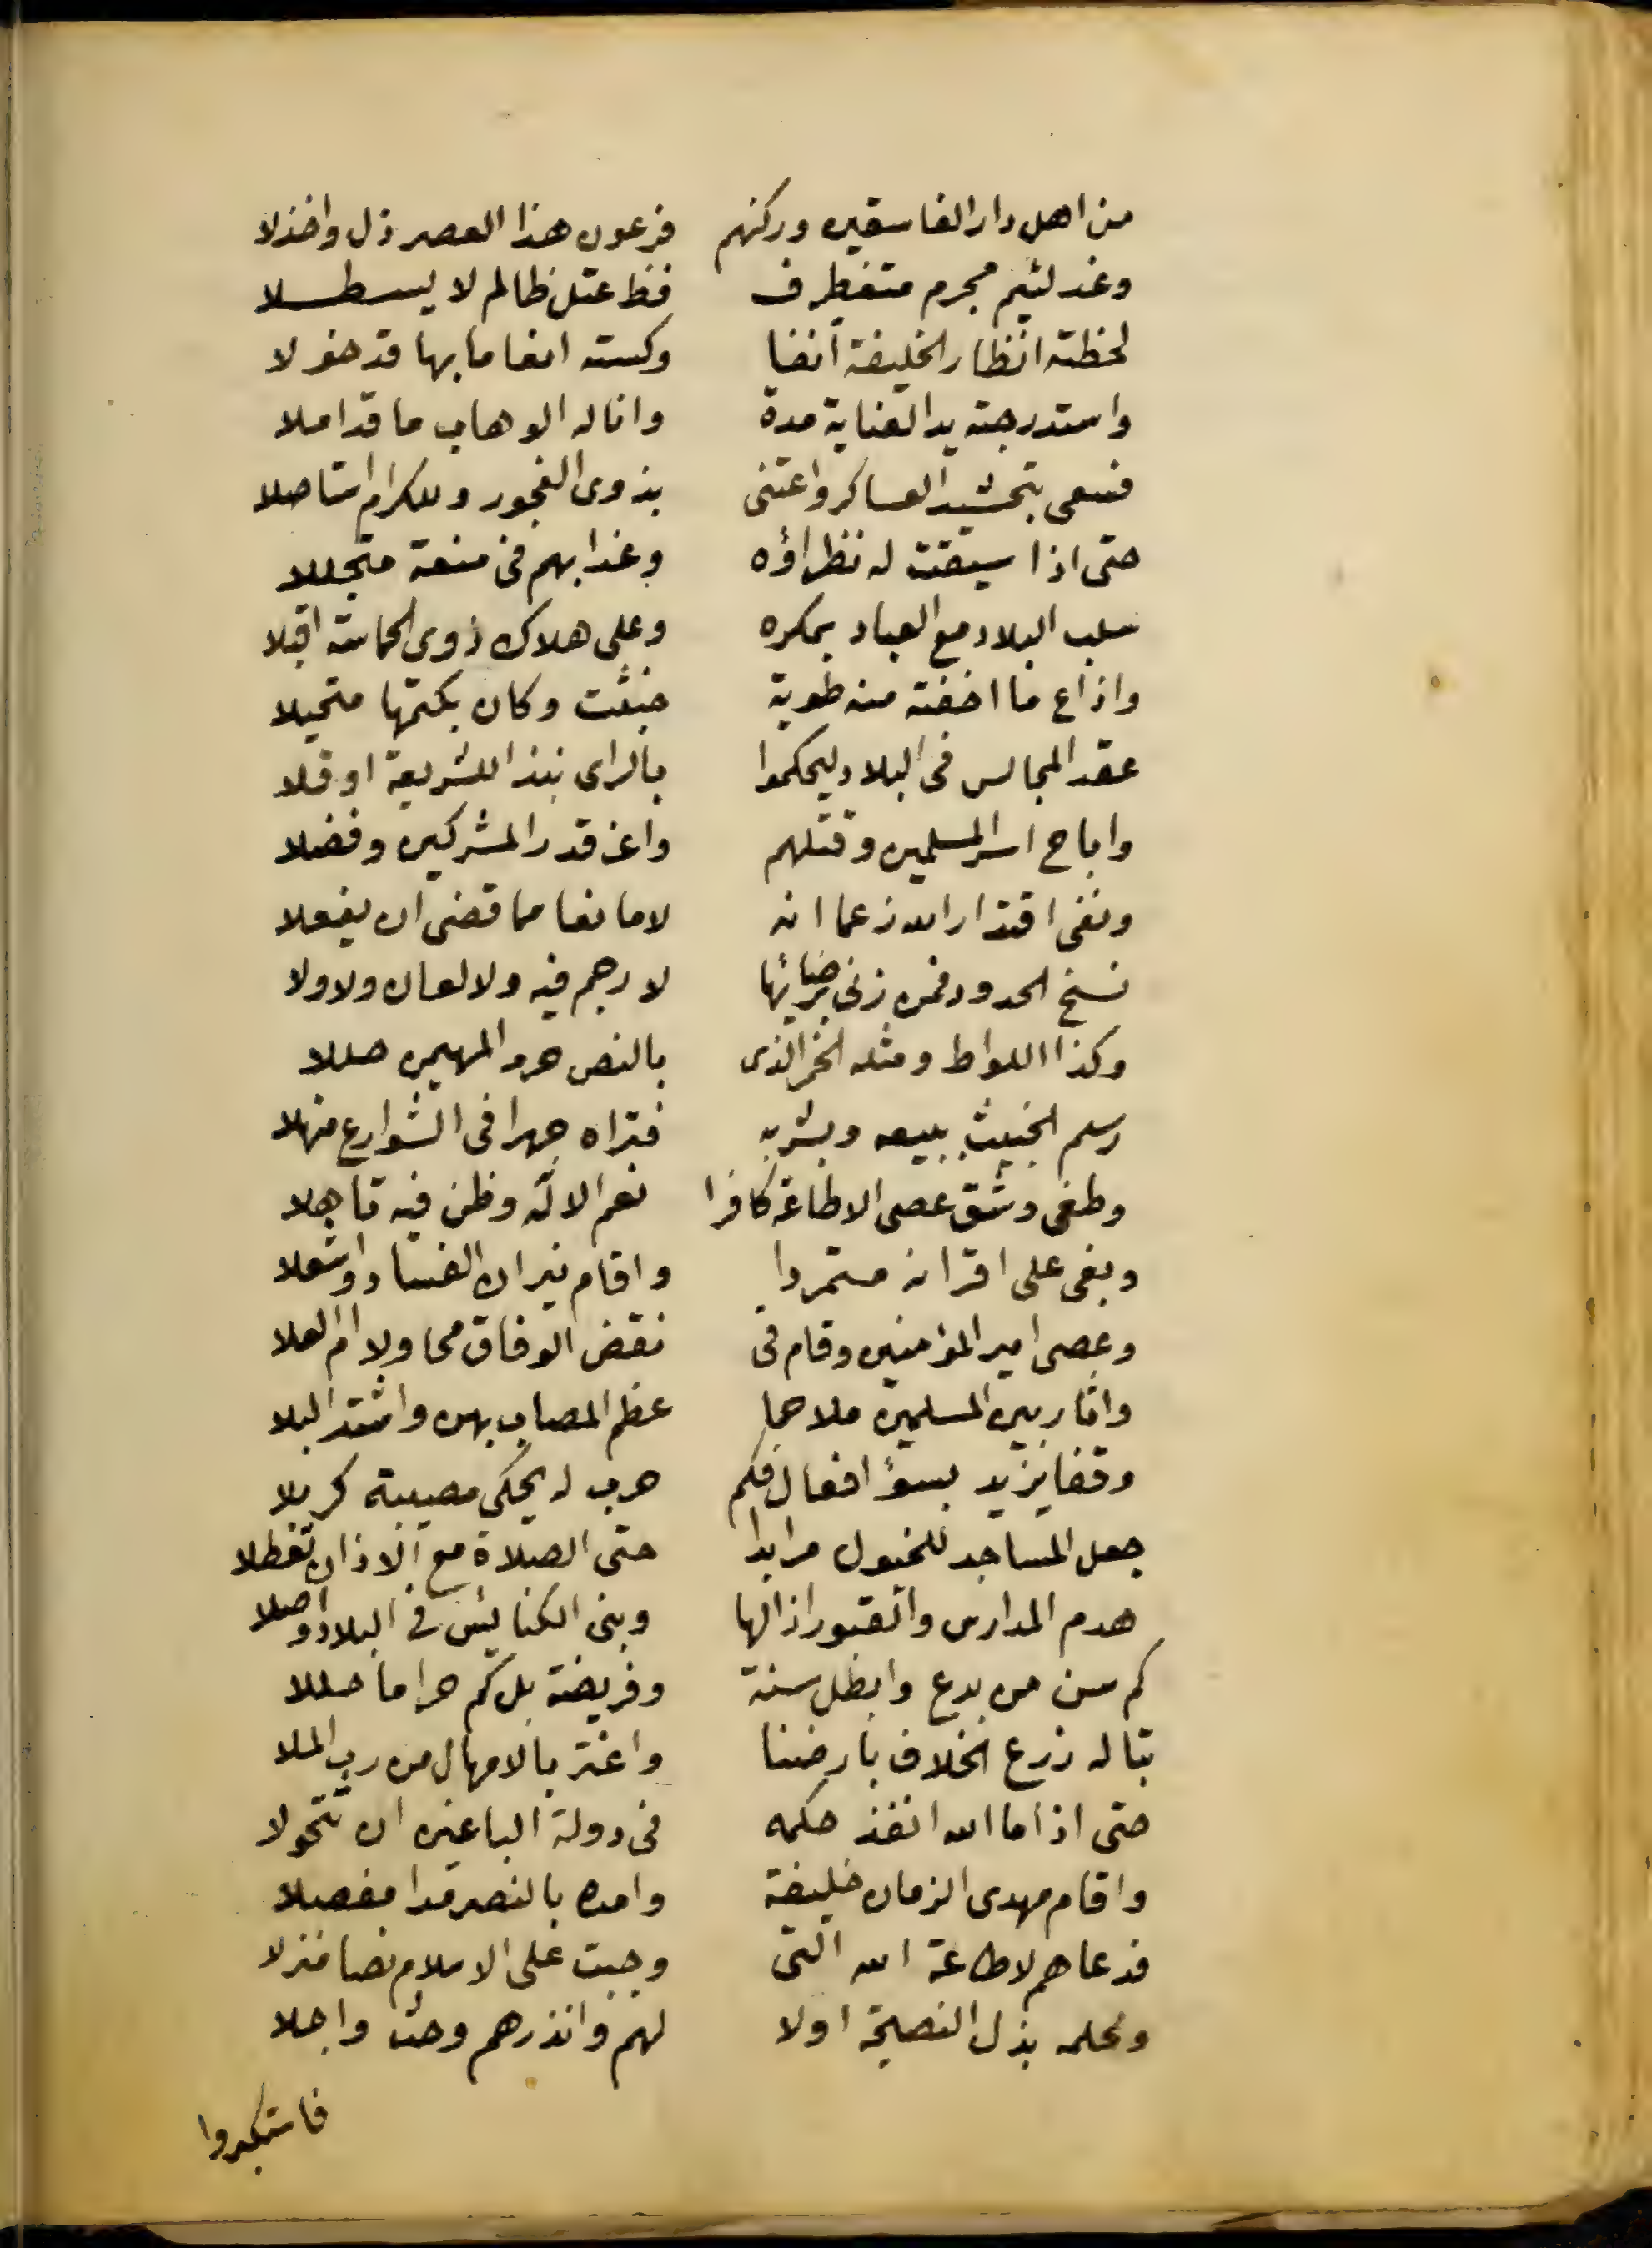 من اهل دار الفاسقين وركنهم فرعون هذا العصر ذل واخذلا
وغد لئيم مجرم متغطرف فظ عتل ظالم لا
لحظته انظار الخليفة آنفا وكسته انعاما بها قد خولا
واستدرجته يد العناية مدة واناله الوهاب ما قد املا
فسعى بتحشيد العساكر واعتنى بذوى الفجور وللكرام استاصلا
حتى اذا سيقت له نظراؤه وغدا بهم فى منعة متجللا
سلب البلاد مع العباد بمكره وعلى هلاك ذوى الحماسة اقبلا
واذاع ما اخفته منه طوية خبثت وكان بكتمها متحيلا
عقد المجالس فى البلاد ليحكموا بالراى نبذا للشريعة او قلا
واباح اسر المسلمين وقتلهم واعز قدر المشركين وفضلا
ونفى اقتدار الله زعما انه لا مانعا مما قضى ان يفعلا
نسخ الحدود فمن زنى برضائها لا رجم فيه ولا لعان ولا ولا
وكذا اللواط ومثله الخمر الذى بالنص حرم المهيمن حللا
رسم الخبيث ببيعه وبشربه فتراه جهرا فى الشوارع منهلا
وطغى وشق عصى الاطاعة كافرا نعم الاله وظن فيه تاهلا
وبغى على اقرانه مستمردا واقام نيران الفساد واشعلا
وعصى امير المؤمنين وقام فى نقض الوفاق محاولا ام العلا
واثار بين المسلمين ملاحما عظم المصاب بهن واشتد البلا
وقفا يزيد بسوء افعال فكم حرب له يحكى مصيبة كربلا
جعل المساجد للخيول مرابدا حتى الصلاة مع الاذان تعطلا
هدم المدارس والقبور ازالها وبنى الكنايئس فى البلاد واصلا
كم سن من بدع وابطل سنة وفريضة بل كم حراما حللا
تبا له زرع الخلاف بارضنا واغتر بالامهال من رب الملا
حتى اذا ما الله انفذ حكمه فى دولة الباغين ان تتحولا
واقام مهدى الزمان خليفة وامده بالنصر مدا مفصلا
فدعاهم لاطاعة الله التى وجبت على الاسلام نصا منزلا
وبحلمه بذل النصيحة اولا لهم وانذرهم وحث واجلا
فاستكبروا